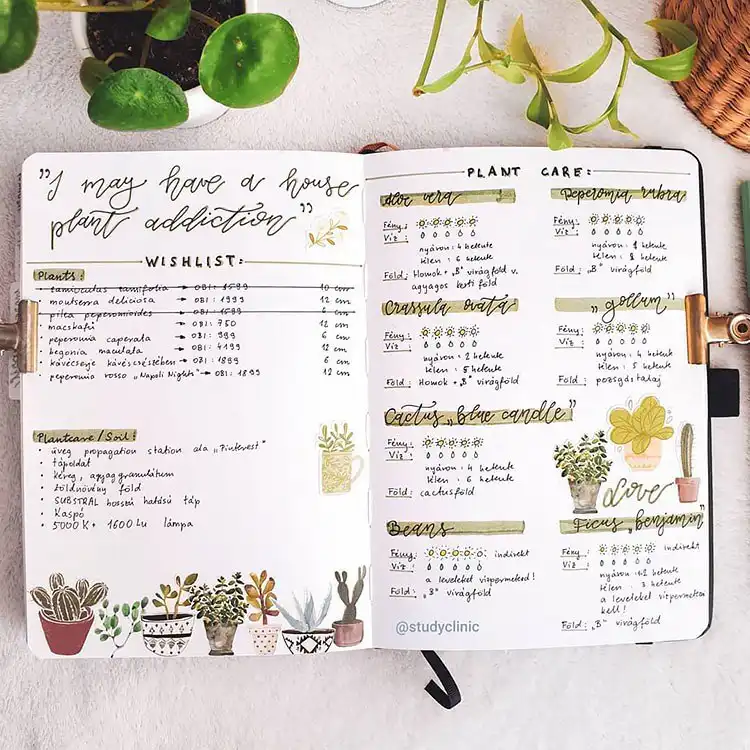 "I may have a house
plant addiction"
WISHLIST:
Plants:
tanivulus tamifolia → OBI: 1599 10 cm
montserra deliciosa → OBI: 1999 12 cm
pilea peperomioides → OBI: 1599 6 cm
macskafű → OBI: 750 12 cm
peperomia caperata → OBI: 999 6 cm
begonia maculata → OBI: 4199 12 cm
kávécserje kávéscsészében → OBI: 1899 6 cm
peperomia rosso „Napoli Nights" → OBI: 1899 12 cm
Plantcare/Soil:
üveg propagation station ala „Pinterest"
tápoldat
kéreg, agyaggranulátum
zöldnövény föld
SUBSTRAL hosszú hatású táp
Kaspó
5000 K + 1600 Lu lámpa
PLANT CARE:
Aloe vera
Fény:
Víz:
nyáron: 4 hetente
télen: 6 hetente
Föld: Homok + „B" virágföld v.
agyagos kerti föld
Crassula ovata
Fény:
Víz:
nyáron: 2 hetente
télen: 5 hetente
Föld: Homok + „B" virágföld
Cactus „blue candle"
Fény:
Víz:
nyáron: 4 hetente
télen: 6 hetente
Föld: cactusföld
Beans
Fény: indirekt
Víz:
a leveleket vízpermetezd!
Föld: „B" virágföld
Peperomia rubra
Fény:
Víz:
nyáron: hetente
télen: hetente
Föld: „B" virágföld
„gollam"
Fény:
Víz:
nyáron: 4 hetente
télen: 5 hetente
Föld: pozsgás talaj
Love
Ficus „benjamin"
Fény: indirekt
Víz:
nyáron 1-2 hetente
télen: 3 hetente
a leveleket vízpermetezni
kell!
Föld: „B" virágföld
@studyclinic